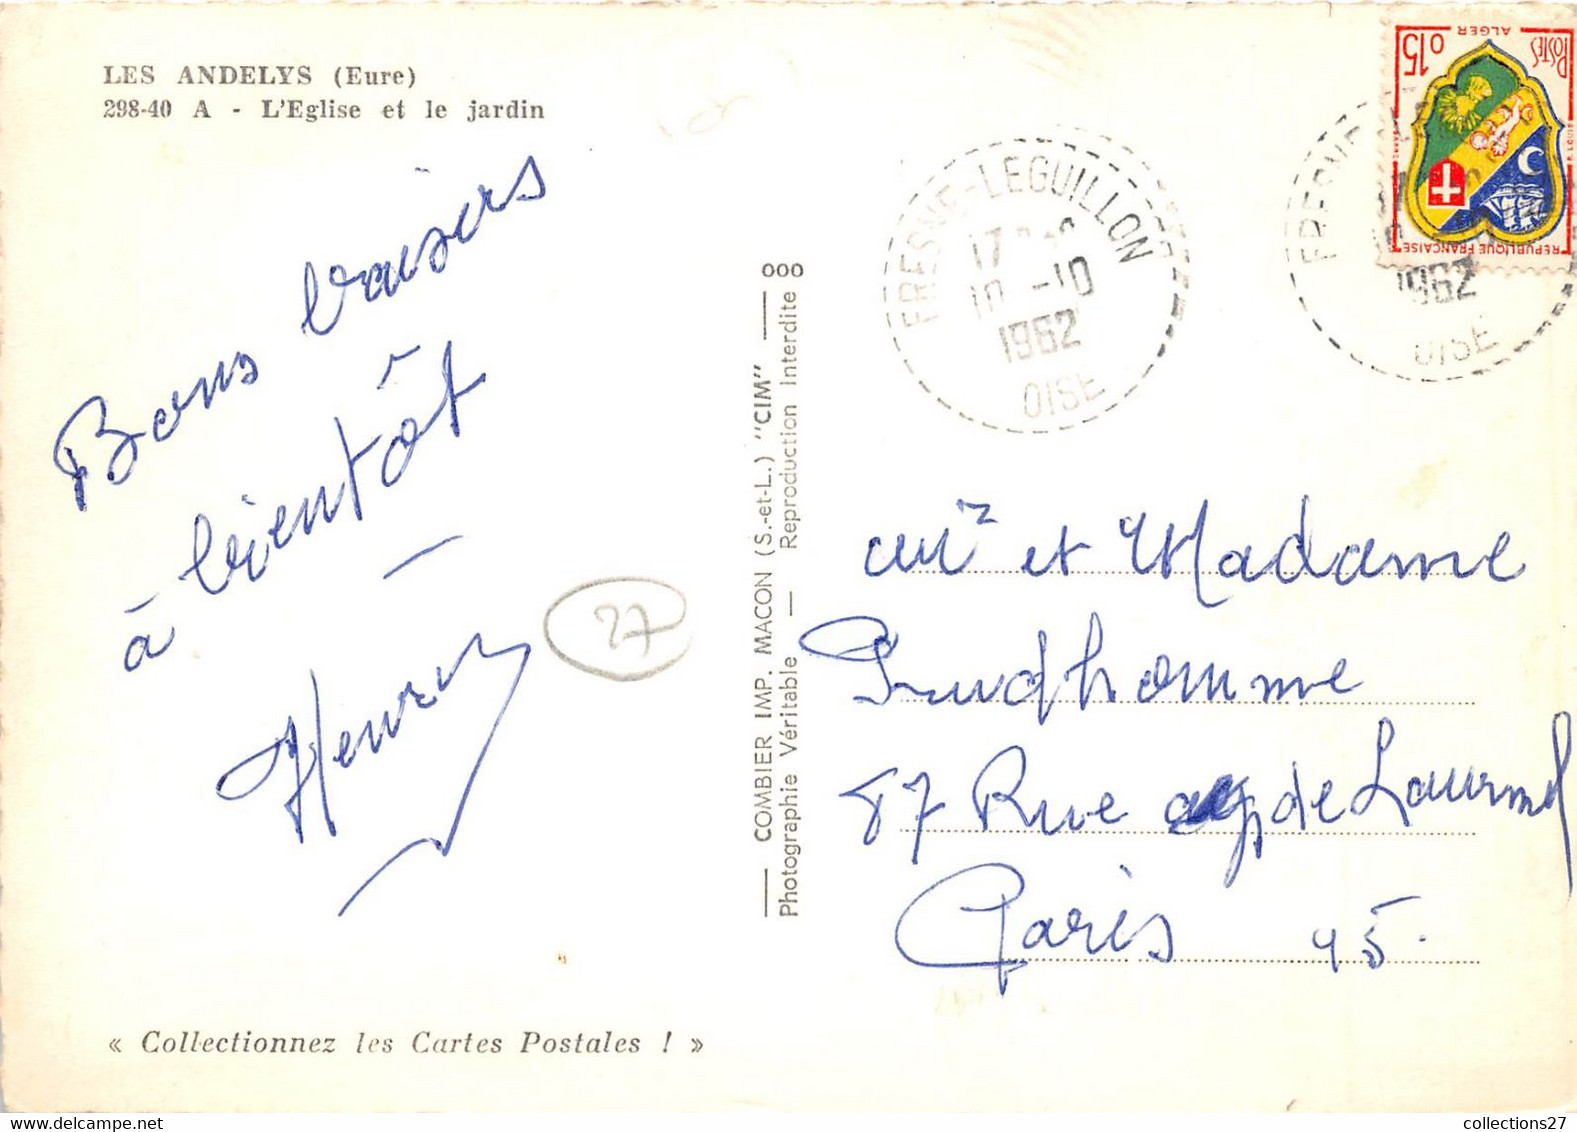 LES ANDELYS (Eure)
298-40 A - L'Eglise et le jardin
Bons baisers
à bientôt
Henry
27
« Collectionnez les Cartes Postales ! »
COMBIER IMP. MACON (S.-et-L.) "CIM"
Photographie Véritable — Reproduction Interdite
000
FRESNE-LEGUILLON
17
10 -10
1962
OISE
POSTES
0,15
ALGER
REPUBLIQUE FRANÇAISE
1962
OISE
Mr et Madame
Prudhomme
87 Rue de Lourmel
Paris 15.
collections27